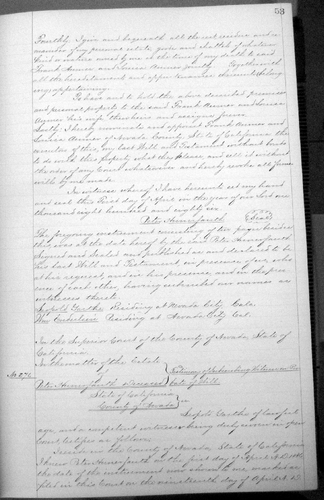 53
Fourthly I give and bequeath all the rest residue and re-
mainder of my personal estate goods and chattels of whatever
kind or nature owned by me at the time of my death to said
Frank and Louisa jointly Together with
all the hereditaments and appurtenances thereunto belong
ing or appertaining
To have and to hold the above described Premises
and personal property to the said Frank and Louisa
his wife their heirs and assigns forever
Lastly I hereby nominate and appoint Frank and
Louisa of Nevada County State of California the
executors of this my last Will and Testament without bonds
to do with this property what they please and sell it without
the order of any Court whatsoever and hereby revoke all former
wills by me made.
In witness whereof I have hereunto set my hand
and seal this first day of April in the year of our Lord one
thousand eight hundred and eighty six
Peter (Seal)
The foregoing instrument consisting of two pages besides
this was at the date hereof by the said Peter
signed and sealed and published as and declared to be
his last Will and Testament in presence of us who
at his request, and in his presence, and in the pres-
ence of each other, having subscribed our names as
witnesses thereto
Leopold Residing at Nevada City Cala.
Wm Residing at Nevada City Cal.
In the Superior Court of the County of Nevada, State of
California
In the matter of the Estate
of
Peter Deceased
Testimony of Subscribing Witness on
of Will
State of California
County of Nevada } ss
Leopold of lawful
age and a competent witness being duly sworn in open
Court testifies as follows
I reside in the County of Nevada State of California
I knew Peter on the first day of April A.D. 1886
the date of the instrument now shown to me marked as
filed in this Court on the nineteenth day of April A.D.